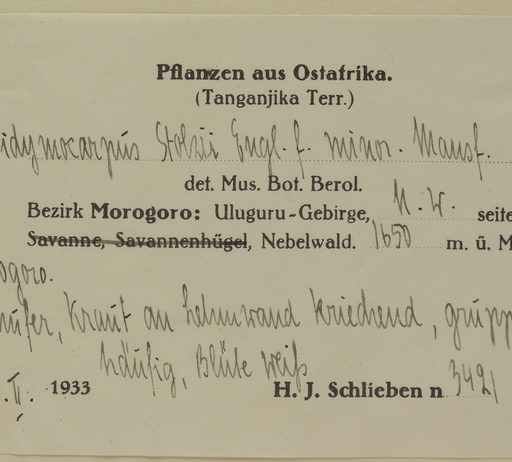 Pflanzen aus Ostafrika.
(Tanganjika Terr.)
idymocarpus Stolzii Engl. f. minor. Mansf.
det. Mus. Bot. Berol.
Bezirk Morogoro: Uluguru-Gebirge, N.W. seite
Savanne, Savannenhügel, Nebelwald. 1650 m. ü. M
ogoro.
ufer, Kraut an Lehmwand kriechend, grupp
häufig, Blüte weiß
. II. 1933 H. J. Schlieben n 3421